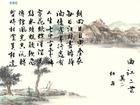 曲江
其二
杜甫
朝回日日典春衣
每日江頭盡醉歸
酒債尋常行處有
人生七十古來稀
穿花蛺蝶深深見
點水蜻蜓款款飛
傳語風光共流轉
暫時相賞莫相違